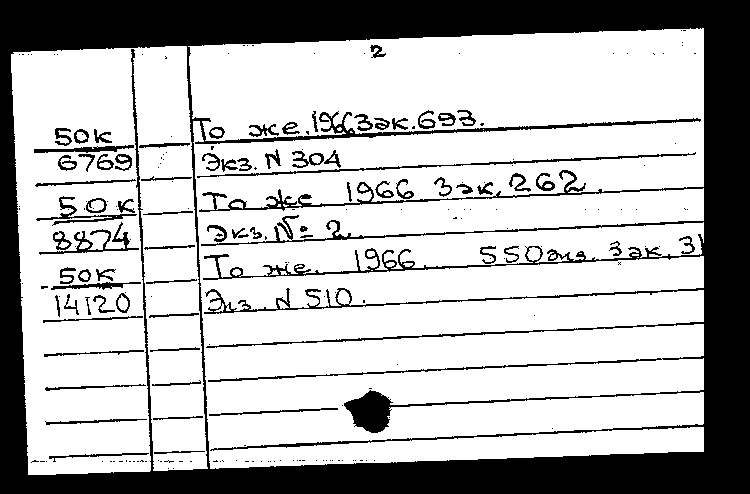 2
50к То же. 1966 Зак. 693.
6769 Экз. N 304
50к То же 1966 Зак. 262.
8874 Экз. № 2.
50к То же. 1966. 550экз. Зак. 31
14120 Экз. N 510.